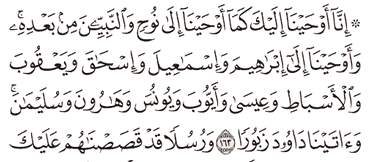 ۞ إِنَّآ أَوْحَيْنَآ إِلَيْكَ كَمَآ أَوْحَيْنَآ إِلَىٰ نُوحٍ وَٱلنَّبِيِّـۧنَ مِنۢ بَعْدِهِۦۚ
وَأَوْحَيْنَآ إِلَىٰٓ إِبْرَٰهِيمَ وَإِسْمَٰعِيلَ وَإِسْحَٰقَ وَيَعْقُوبَ
وَٱلْأَسْبَاطِ وَعِيسَىٰ وَأَيُّوبَ وَيُونُسَ وَهَٰرُونَ وَسُلَيْمَٰنَۚ
وَءَاتَيْنَا دَاوُۥدَ زَبُورًا ١٦٣ وَرُسُلًا قَدْ قَصَصْنَٰهُمْ عَلَيْكَ